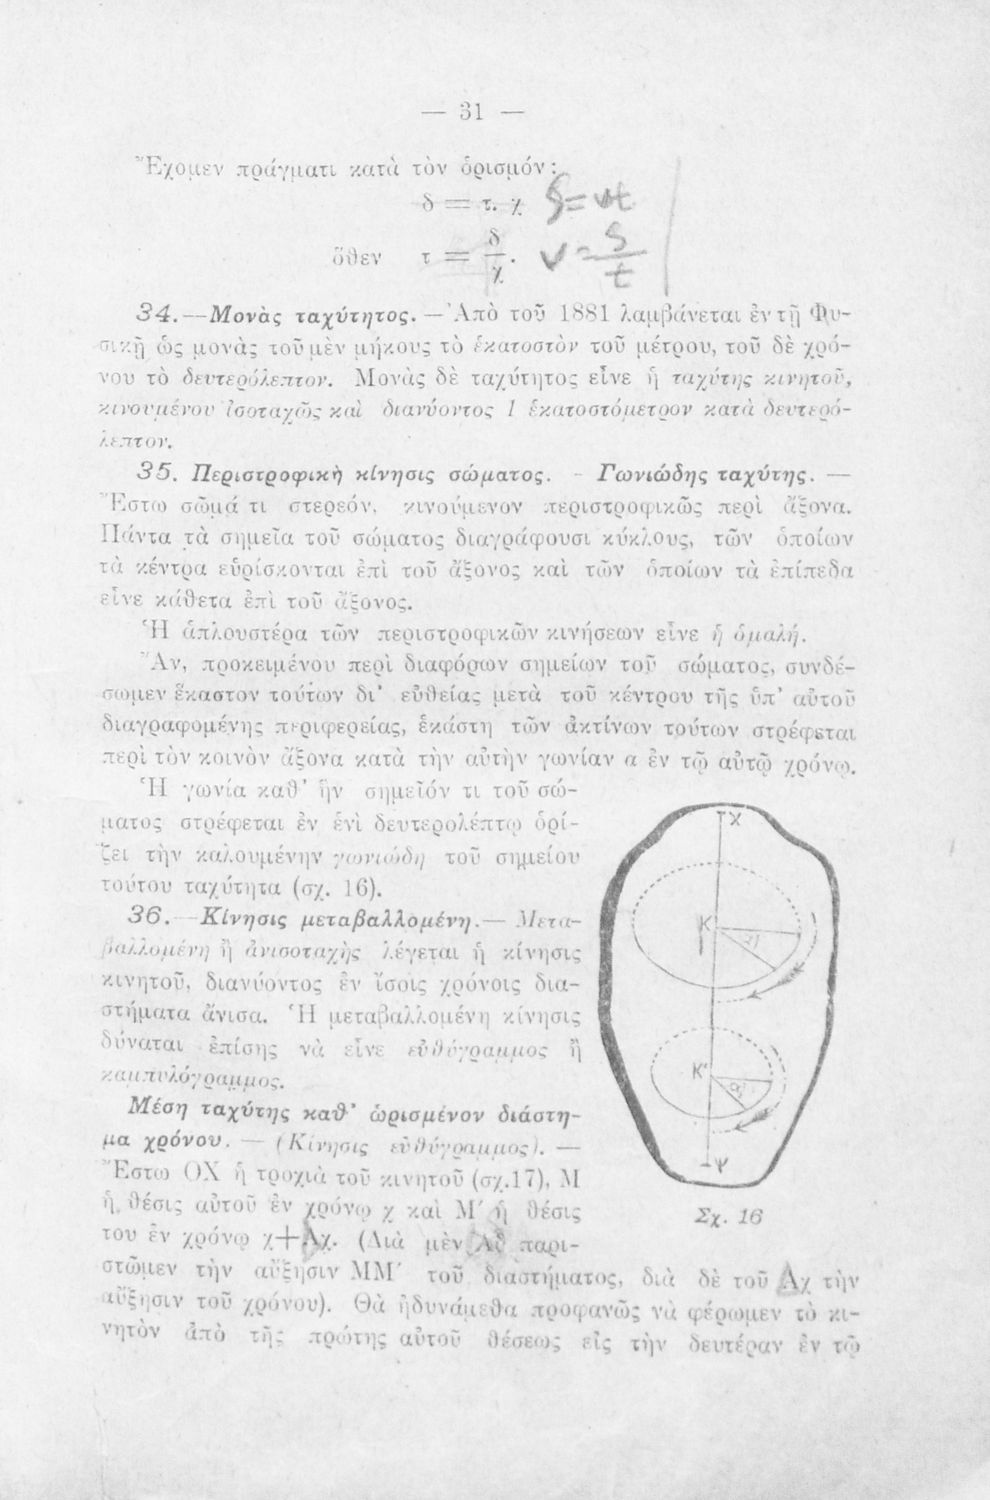 — 31 —
Ἔχομεν πράγματι κατὰ τὸν ὁρισμόν:
δ = τ. χ S = vt
ὅθεν τ = δ/χ. v = S/t
34.—Μονὰς ταχύτητος. — Ἀπὸ τοῦ 1881 λαμβάνεται ἐν τῇ Φυ-
σικῇ ὡς μονὰς τοῦ μὲν μήκους τὸ ἑκατοστὸν τοῦ μέτρου, τοῦ δὲ χρό-
νου τὸ δευτερόλεπτον. Μονὰς δὲ ταχύτητος εἶνε ἡ ταχύτης κινητοῦ,
κινουμένου ἰσοταχῶς καὶ διανύοντος 1 ἑκατοστόμετρον κατὰ δευτερό-
λεπτον.
35. Περιστροφικὴ κίνησις σώματος. - Γωνιώδης ταχύτης. —
Ἔστω σῶμά τι στερεόν, κινούμενον περιστροφικῶς περὶ ἄξονα.
Πάντα τὰ σημεῖα τοῦ σώματος διαγράφουσι κύκλους, τῶν ὁποίων
τὰ κέντρα εὑρίσκονται ἐπὶ τοῦ ἄξονος καὶ τῶν ὁποίων τὰ ἐπίπεδα
εἶνε κάθετα ἐπὶ τοῦ ἄξονος.
Ἡ ἁπλουστέρα τῶν περιστροφικῶν κινήσεων εἶνε ἡ ὁμαλή.
Ἄν, προκειμένου περὶ διαφόρων σημείων τοῦ σώματος, συνδέ-
σωμεν ἕκαστον τούτων δι' εὐθείας μετὰ τοῦ κέντρου τῆς ὑπ' αὐτοῦ
διαγραφομένης περιφερείας, ἑκάστη τῶν ἀκτίνων τούτων στρέφεται
περὶ τὸν κοινὸν ἄξονα κατὰ τὴν αὐτὴν γωνίαν α ἐν τῷ αὐτῷ χρόνῳ.
Ἡ γωνία καθ' ἣν σημεῖόν τι τοῦ σώ-
ματος στρέφεται ἐν ἑνὶ δευτερολέπτῳ ὁρί-
ζει τὴν καλουμένην γωνιώδη τοῦ σημείου
τούτου ταχύτητα (σχ. 16).
36. —Κίνησις μεταβαλλομένη.— Μετα-
βαλλομένη ἢ ἀνισοταχὴς λέγεται ἡ κίνησις
κινητοῦ, διανύοντος ἐν ἴσοις χρόνοις δια-
στήματα ἄνισα. Ἡ μεταβαλλομένη κίνησις
δύναται ἐπίσης νὰ εἶνε εὐθύγραμμος ἢ
καμπυλόγραμμος.
Μέση ταχύτης καθ' ὡρισμένον διάστη-
μα χρόνου. — (Κίνησις εὐθύγραμμος). —
Ἔστω ΟΧ ἡ τροχιὰ τοῦ κινητοῦ (σχ.17), Μ
ἡ θέσις αὐτοῦ ἐν χρόνῳ χ καὶ Μ′ ἡ θέσις
του ἐν χρόνῳ χ+Δχ. (Διὰ μὲν Δδ παρι-
στῶμεν τὴν αὔξησιν ΜΜ′ τοῦ διαστήματος, διὰ δὲ τοῦ Δχ τὴν
αὔξησιν τοῦ χρόνου). Θὰ ἠδυνάμεθα προφανῶς νὰ φέρωμεν τὸ κι-
νητὸν ἀπὸ τῆς πρώτης αὐτοῦ θέσεως εἰς τὴν δευτέραν ἐν τῷ
Χ
Κ
α
Κ′
α
Ψ
Σχ. 16